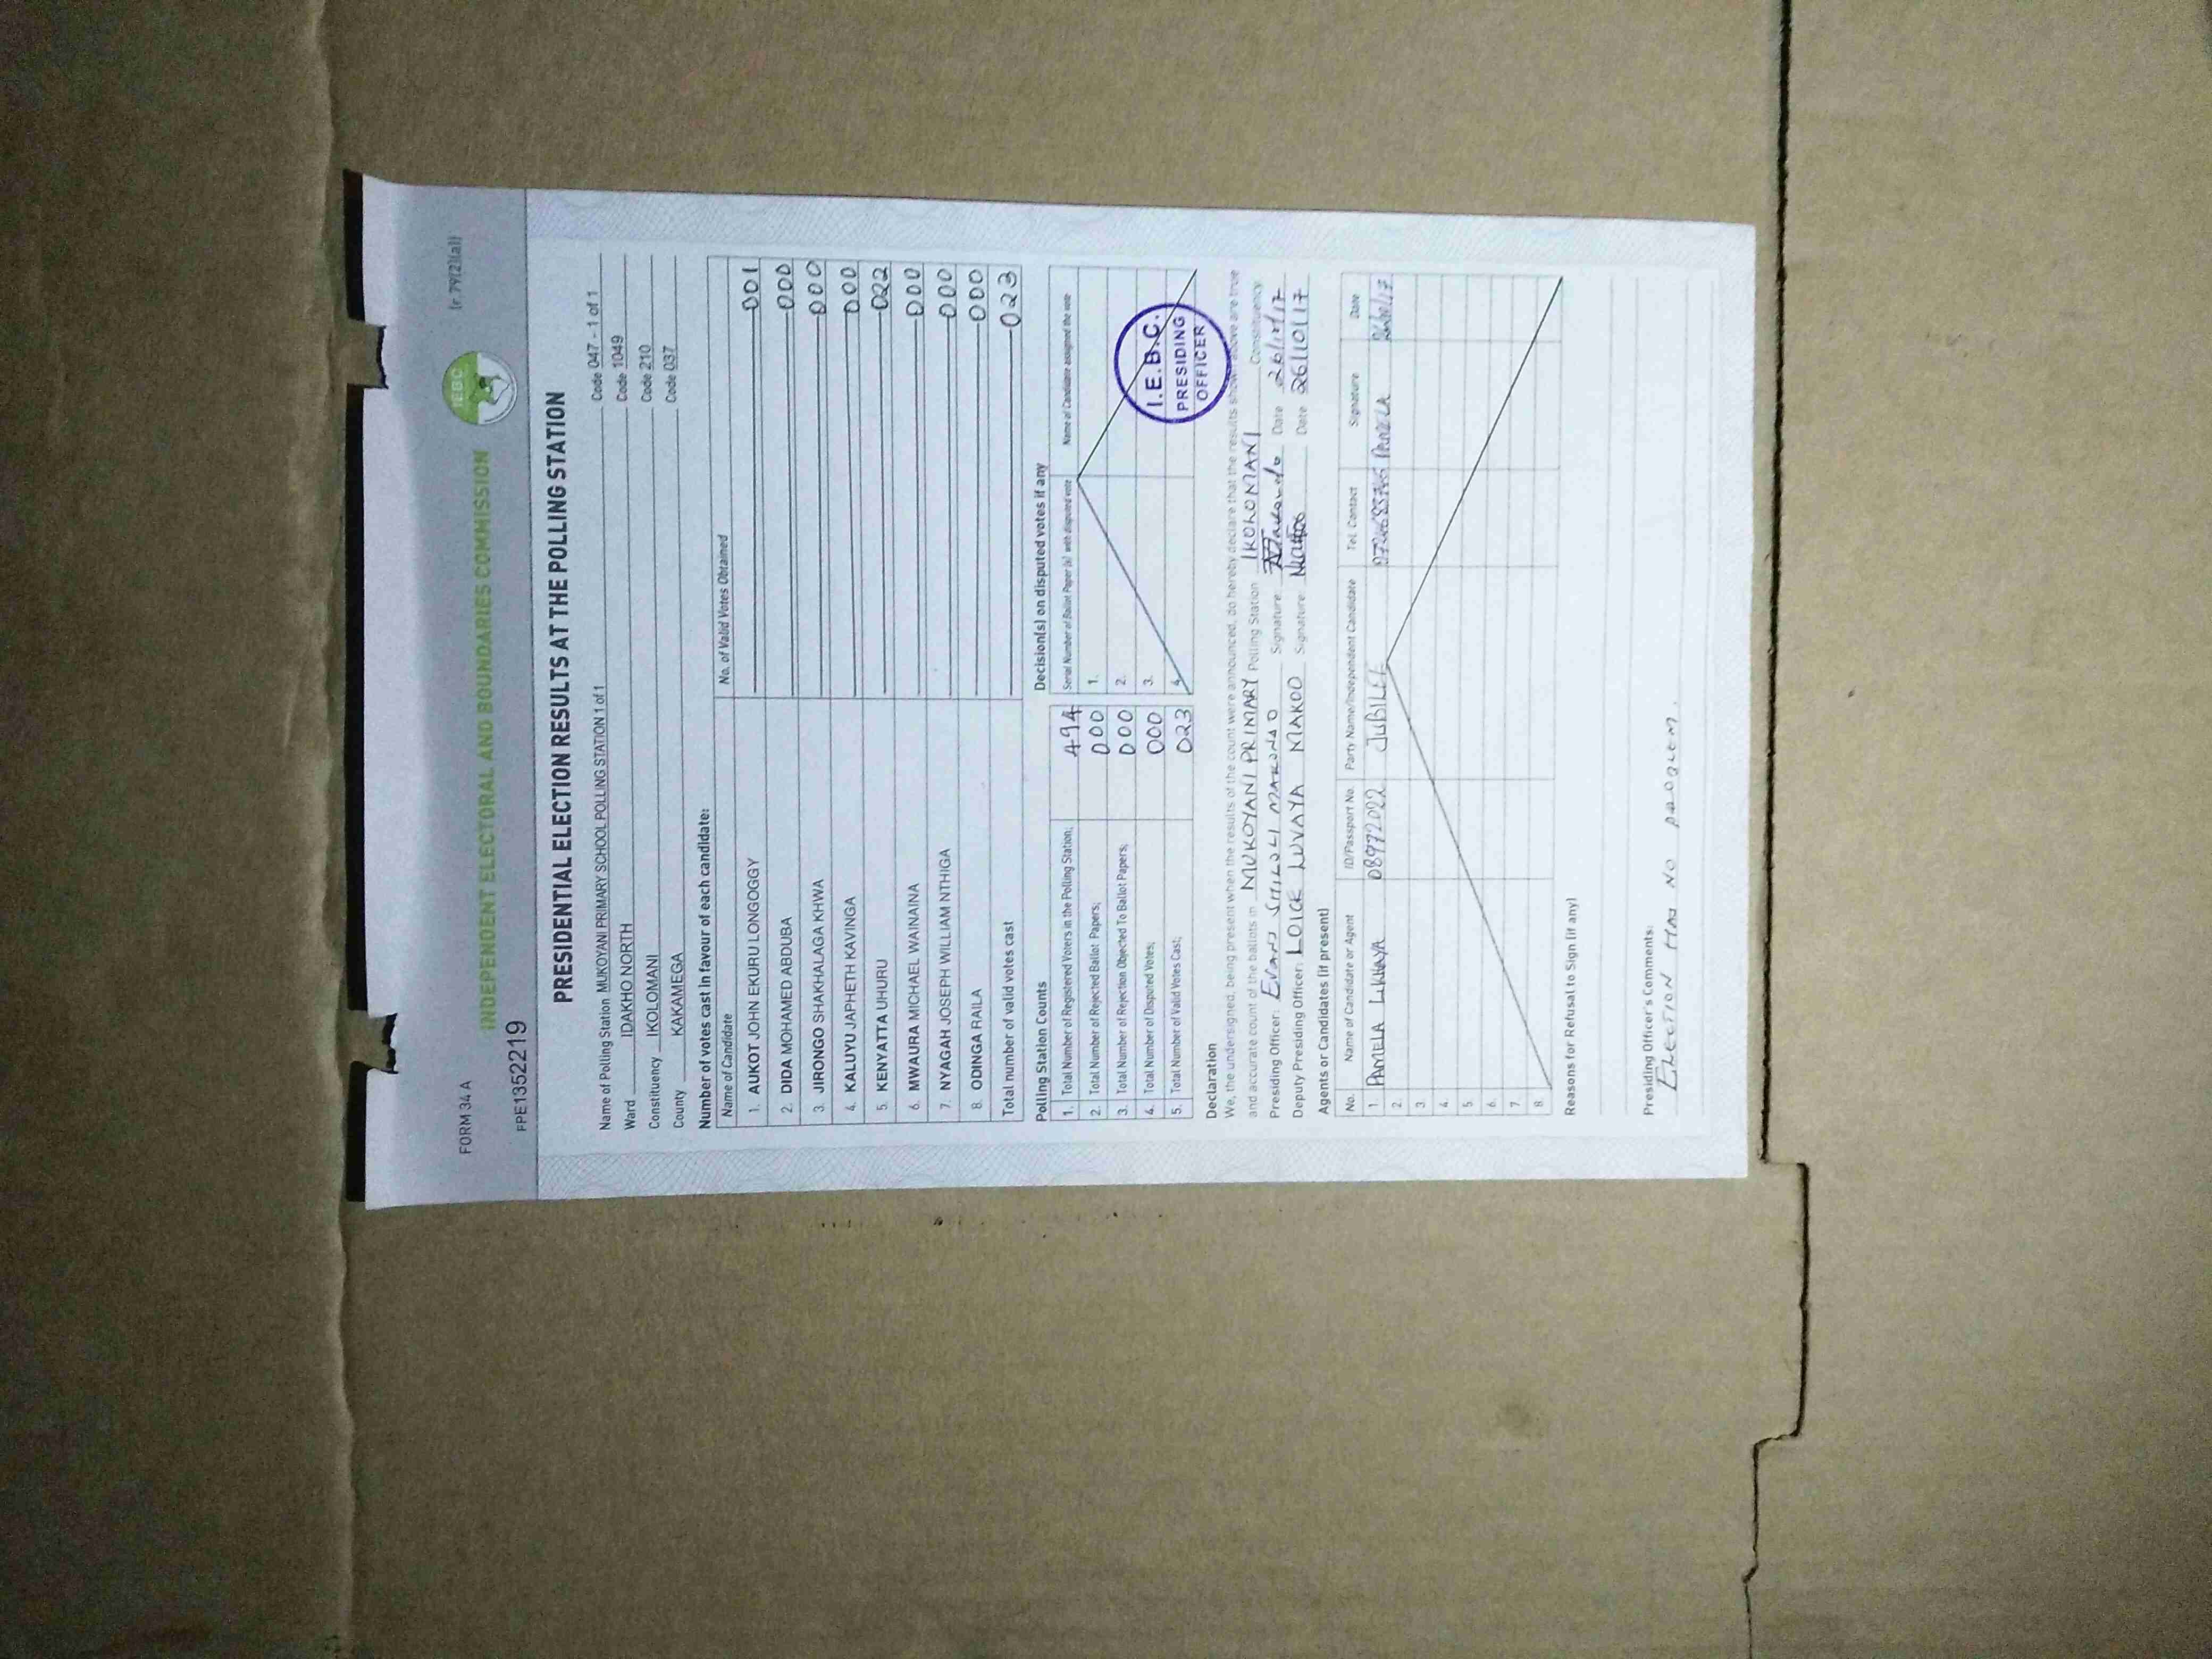 FORM 34 A
(r 79(2)(a))
IEBC
INDEPENDENT ELECTORAL AND BOUNDARIES COMMISSION
FPE1352219
PRESIDENTIAL ELECTION RESULTS AT THE POLLING STATION
Name of Polling Station MUKOYANI PRIMARY SCHOOL POLLING STATION 1 of 1 Code 047 - 1 of 1
Ward IDAKHO NORTH Code 1049
Constituency IKOLOMANI Code 210
County KAKAMEGA Code 037
Number of votes cast in favour of each candidate:
Name of Candidate No. of Valid Votes Obtained
1. AUKOT JOHN EKURU LONGOGGY 001
2. DIDA MOHAMED ABDUBA 000
3. JIRONGO SHAKHALAGA KHWA 000
4. KALUYU JAPHETH KAVINGA 000
5. KENYATTA UHURU 022
6. MWAURA MICHAEL WAINAINA 000
7. NYAGAH JOSEPH WILLIAM NTHIGA 000
8. ODINGA RAILA 000
Total number of valid votes cast 023
Polling Station Counts Decision(s) on disputed votes if any
1. Total Number of Registered Voters in the Polling Station; 494 Serial Number of Ballot Paper (s) with disputed vote Name of Candidate assigned the vote
2. Total Number of Rejected Ballot Papers; 000 1.
3. Total Number of Rejection Objected To Ballot Papers; 000 2.
4. Total Number of Disputed Votes; 000 3.
5. Total Number of Valid Votes Cast; 023 4.
I.E.B.C.
PRESIDING
OFFICER
Declaration
We, the undersigned, being present when the results of the count were announced, do hereby declare that the results shown above are true
and accurate count of the ballots in MUKOYANI PRIMARY Polling Station IKOLOMANI Constituency
Presiding Officer: EVANS SHILOLI MAKONDO Signature Date 26/10/17
Deputy Presiding Officer: LOICE LUVAYA MAKOO Signature Date 26/10/17
Agents or Candidates (if present)
No. Name of Candidate or Agent ID/Passport No. Party Name/Independent Candidate Tel. Contact Signature Date
1. PAMELA 08972022 JUBILEE PAMELA 26/10/17
2.
3.
4.
5.
6.
7.
8.
Reasons for Refusal to Sign (if any)
Presiding Officer's Comments:
ELECTION HAD NO PROBLEM.